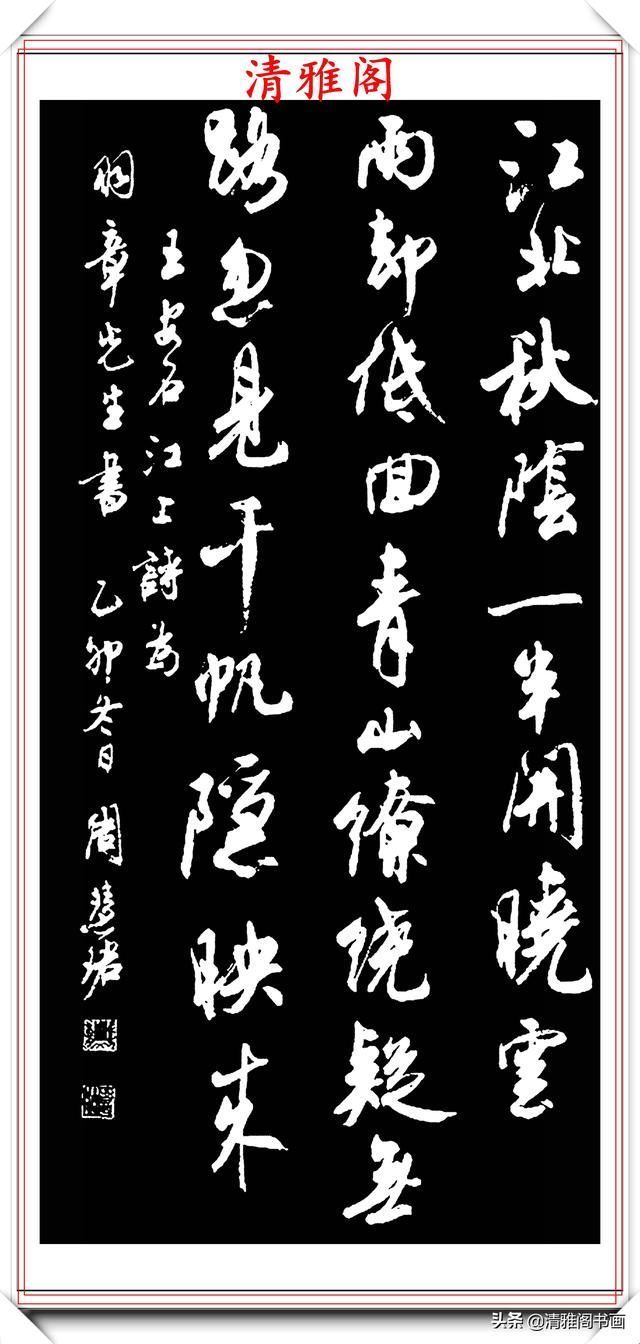 清雅阁
江北秋陰一半開曉雲
雨却低回青山繚繞疑無
路忽見千帆隱映来
王安石江上詩為
章先生書 乙卯冬日 周慧珺
头条 @清雅阁书画